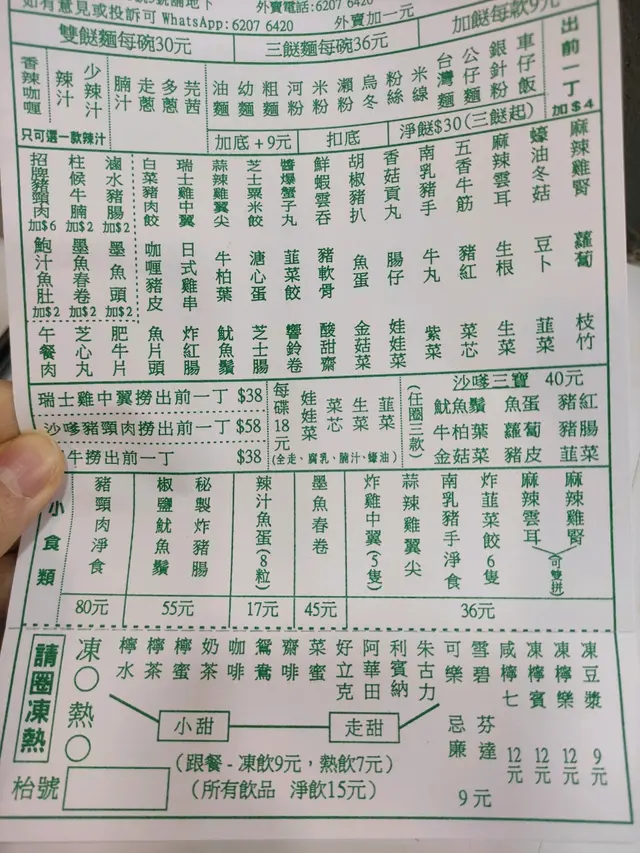 如有意見或投訴可 WhatsApp: 6207 6420 外賣電話: 6207 6420 外賣加一元 加餸每款9元
雙餸麵每碗30元 三餸麵每碗36元
出前一丁加$4
香辣咖喱 辣汁 少辣汁
只可選一款辣汁
腩汁 走蔥 多蔥 芫茜
油麵 幼麵 粗麵 河粉 米粉 瀨粉 烏冬 粉絲 米線 台灣麵 公仔麵 銀針粉 車仔飯
加底 + 9元 扣底 淨餸$30(三餸起)
招牌豬頸肉加$6 柱侯牛腩加$2 滷水豬腸加$2 白菜豬肉餃 瑞士雞中翼 蒜辣雞翼尖 芝士粟米餃 醬爆蟹子丸 鮮蝦雲吞 胡椒豬扒 香菇貢丸 南乳豬手 五香牛筋 麻辣雲耳 蠔油冬菇 麻辣雞腎
鮑汁魚肚加$2 墨魚春卷加$2 墨魚頭加$2 咖喱豬皮 日式雞串 牛柏葉 溏心蛋 韮菜餃 豬軟骨 魚蛋 腸仔 牛丸 豬紅 生根 豆卜 蘿蔔
午餐肉 芝心丸 肥牛片 魚片頭 炸紅腸 魷魚鬚 芝士腸 響鈴卷 酸甜齋 金菇菜 娃娃菜 紫菜 菜芯 生菜 韮菜 枝竹
瑞士雞中翼撈出前一丁 $38
沙嗲豬頸肉撈出前一丁 $58
牛撈出前一丁 $38
每碟18元 娃娃菜 菜芯 生菜 韮菜
(全走、腐乳、腩汁、蠔油)
沙嗲三寶 40元
(任圈三款)
魷魚鬚 魚蛋 豬紅
牛柏葉 蘿蔔 豬腸
金菇菜 豬皮 韮菜
小食類
豬頸肉淨食 80元
椒鹽魷魚鬚 秘製炸豬腸 55元
辣汁魚蛋(8粒) 17元
墨魚春卷 45元
炸雞中翼(5隻) 蒜辣雞翼尖 南乳豬手淨食 炸韮菜餃6隻 麻辣雲耳 麻辣雞腎 (可雙拼) 36元
請圈凍熱
凍○
熱○
檸水 檸茶 檸蜜 奶茶 咖啡 鴛鴦 齋啡 菜蜜 好立克 阿華田 利賓納 朱古力
可樂 雪碧 忌廉 芬達 9元
咸檸七 12元 凍檸賓 12元 凍檸樂 12元 凍豆漿 9元
小甜 走甜
(跟餐 - 凍飲9元，熱飲7元)
(所有飲品 淨飲15元)
枱號